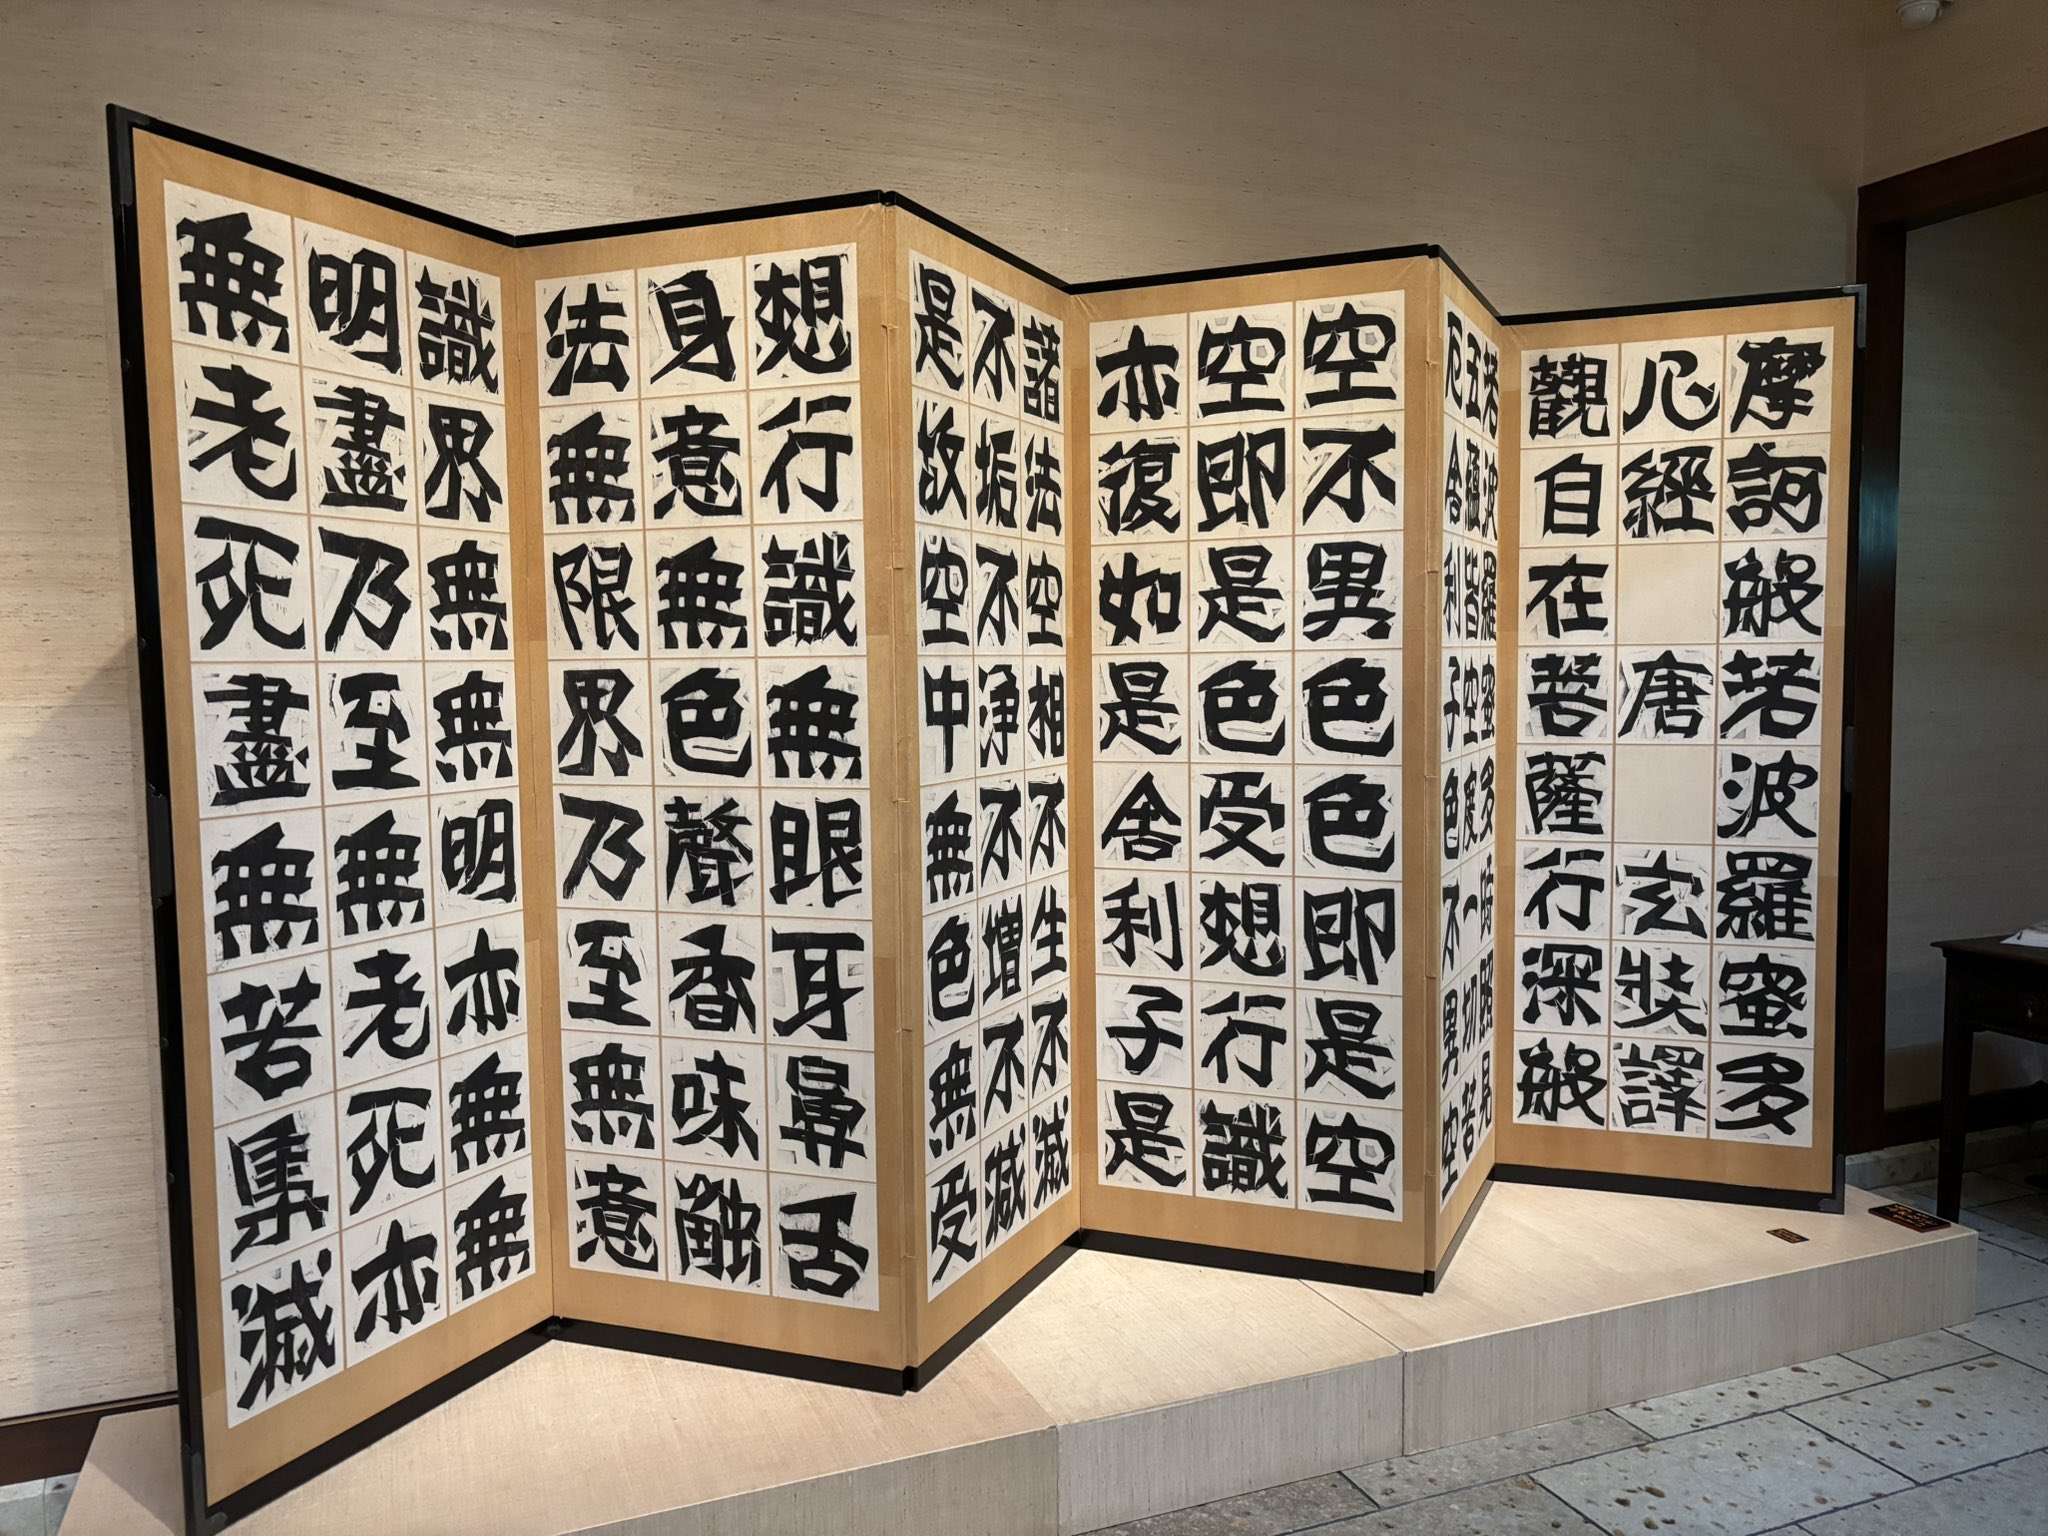 摩訶般若波羅蜜多
心經 唐 玄奘譯
觀自在菩薩行深般
若波羅蜜多時照見
五蘊皆空度一切苦
厄舍利子色不異空
空不異色色即是空
空即是色受想行識
亦復如是舍利子是
諸法空相不生不滅
不垢不浄不増不減
是故空中無色無受
想行識無眼耳鼻舌
身意無色聲香味触
法無限界乃至無意
識界無無明亦無無
明盡乃至無老死亦
無老死盡無苦集滅